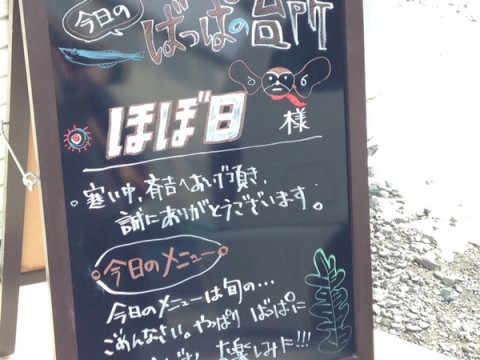 今日の
ばっぱの台所
ほぼ日
様
寒い中、斉吉へおいで頂き、
誠にありがとうございます。
今日のメニュー
今日のメニューは旬の…
ごめんなさい。やっぱり ばっぱに
お楽しみに!!!